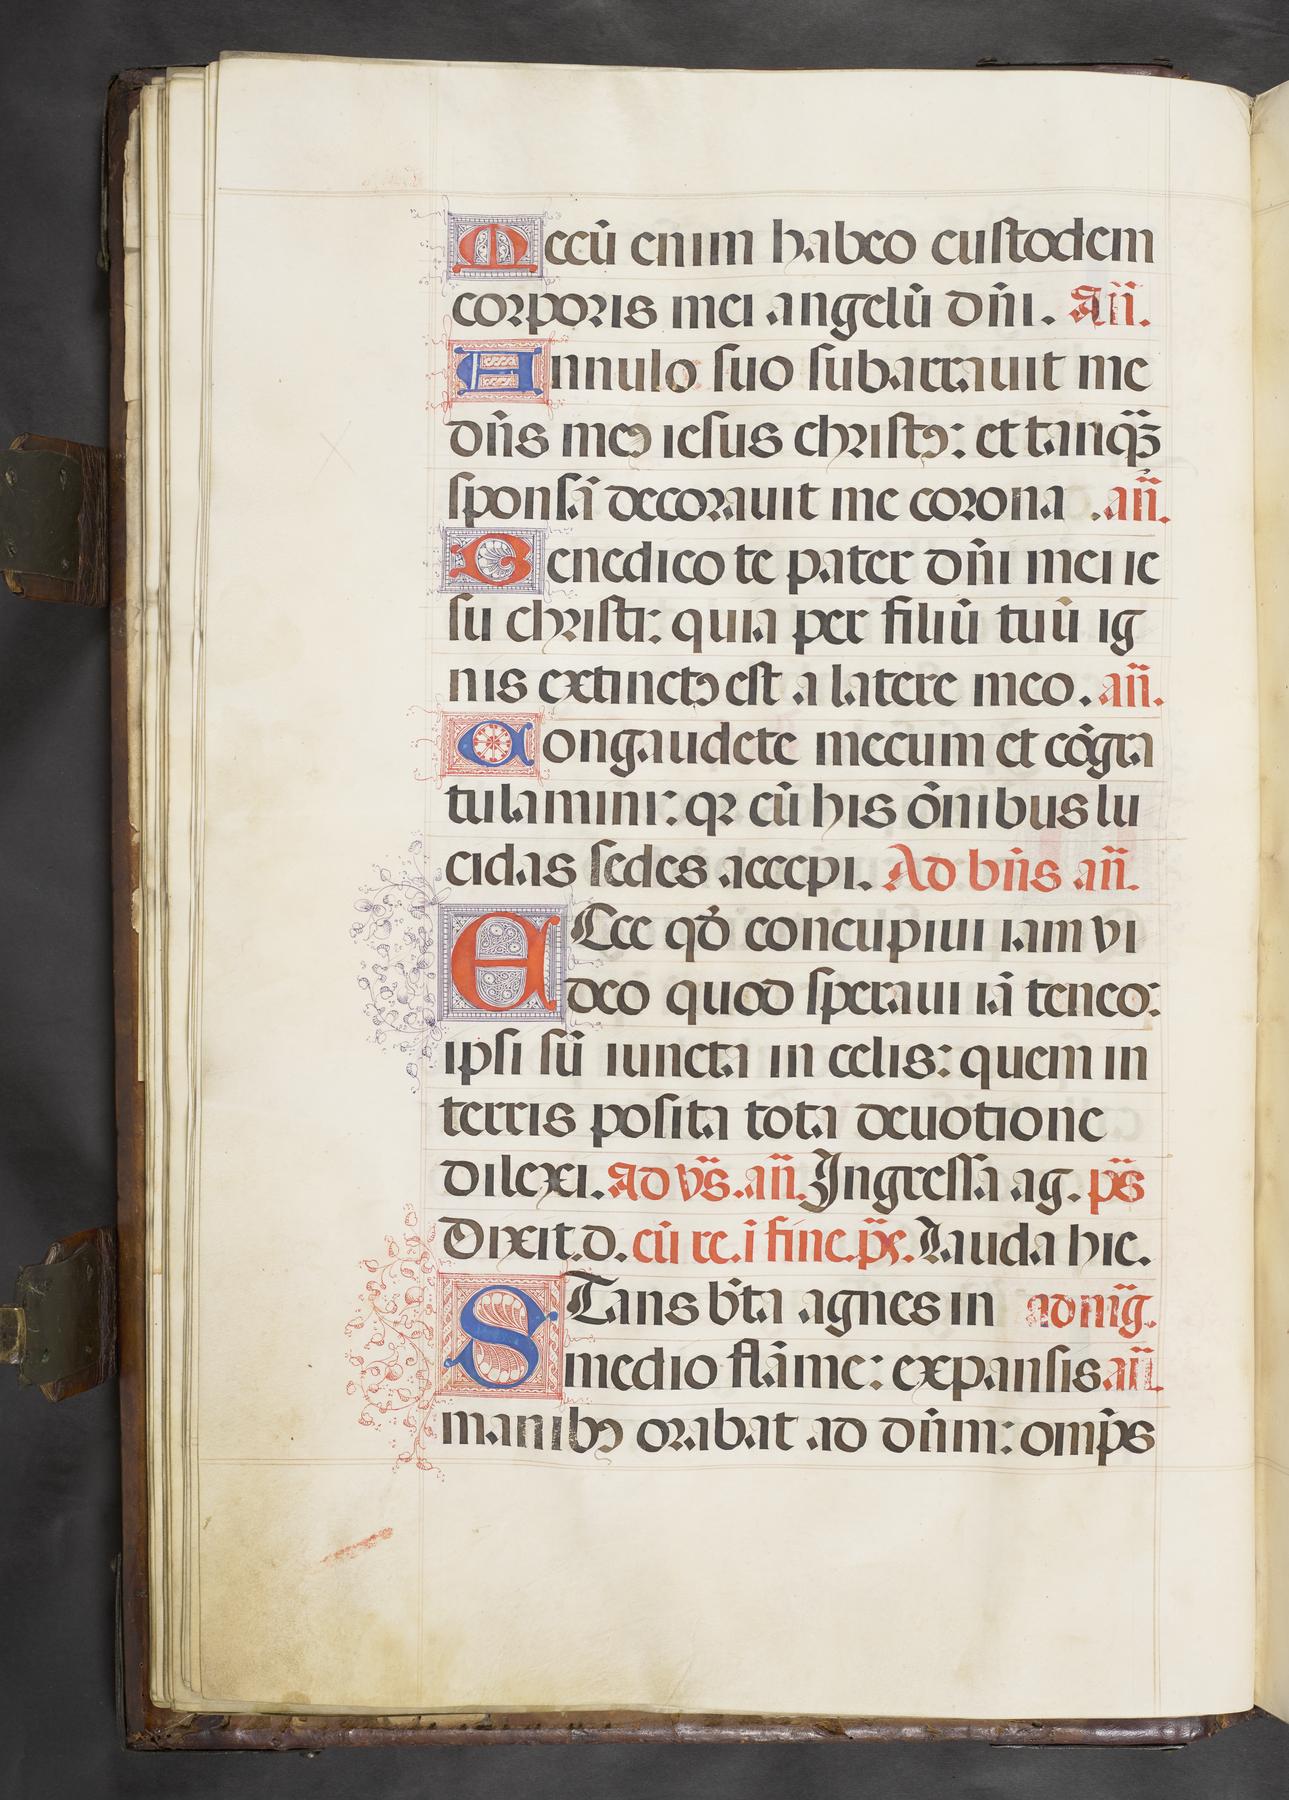 Meccū enim habeo custodem
corporis mei angelū dñi. Añ.
Annulo suo subarrauit me
dñs meꝯ iesus christꝯ: et tanqꝫ
sponsā decorauit me corona .añ.
Benedico te pater dñi mei ie
su christi: quia per filiū tuū ig
nis extinctꝯ est a latere meo. añ.
Congaudete mecum et cōgra
tulamini: qꝛ cū his ōnibus lu
cidas sedes accepi. Ad bñs añ.
ECce qđ concupiui iam vi
deo quod speraui iā teneo:
ipsi sū iuncta in celis: quem in
terris posita tota deuotione
dilexi. Ad vs̄. añ. Ingressa ag. ps̄
Dixit.d. cū re. ī fine.ps̄. Lauda hie.
STans b̄ta agnes in ad mḡ.
medio flāme: expansis añ
manibꝯ orabat ad dn̄m: omp̄s